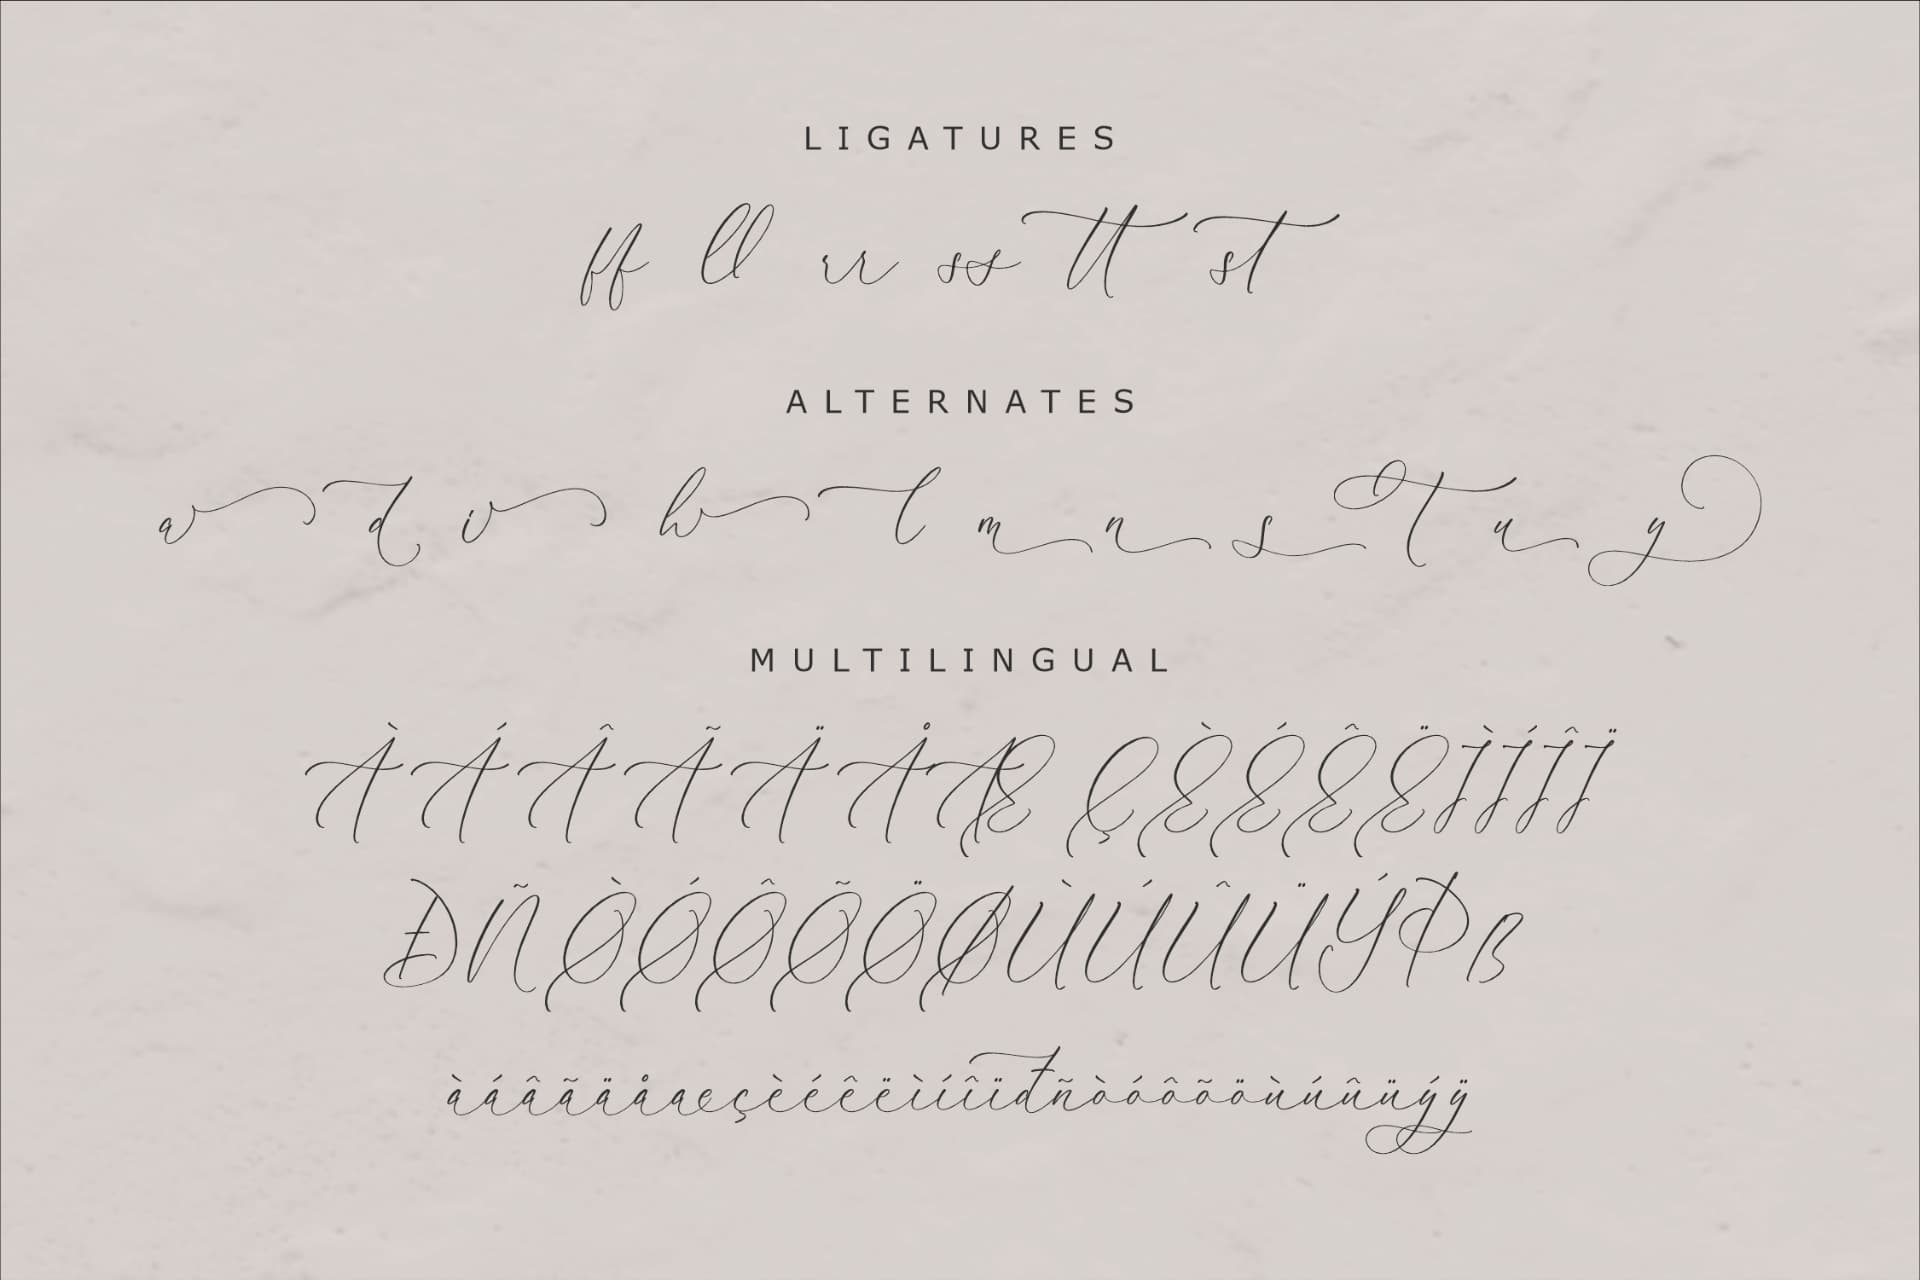 LIGATURES
ff ll rr ss tt st
ALTERNATES
a d i h l m n s t u y
MULTILINGUAL
ÀÁÂÃÄÅÆÇÈÉÊËÌÍÎÏ
ÐÑÒÓÔÕÖØÙÚÛÜÝÞß
àáâãäåæçèéêëìíîïđñòóôõöùúûüýÿ